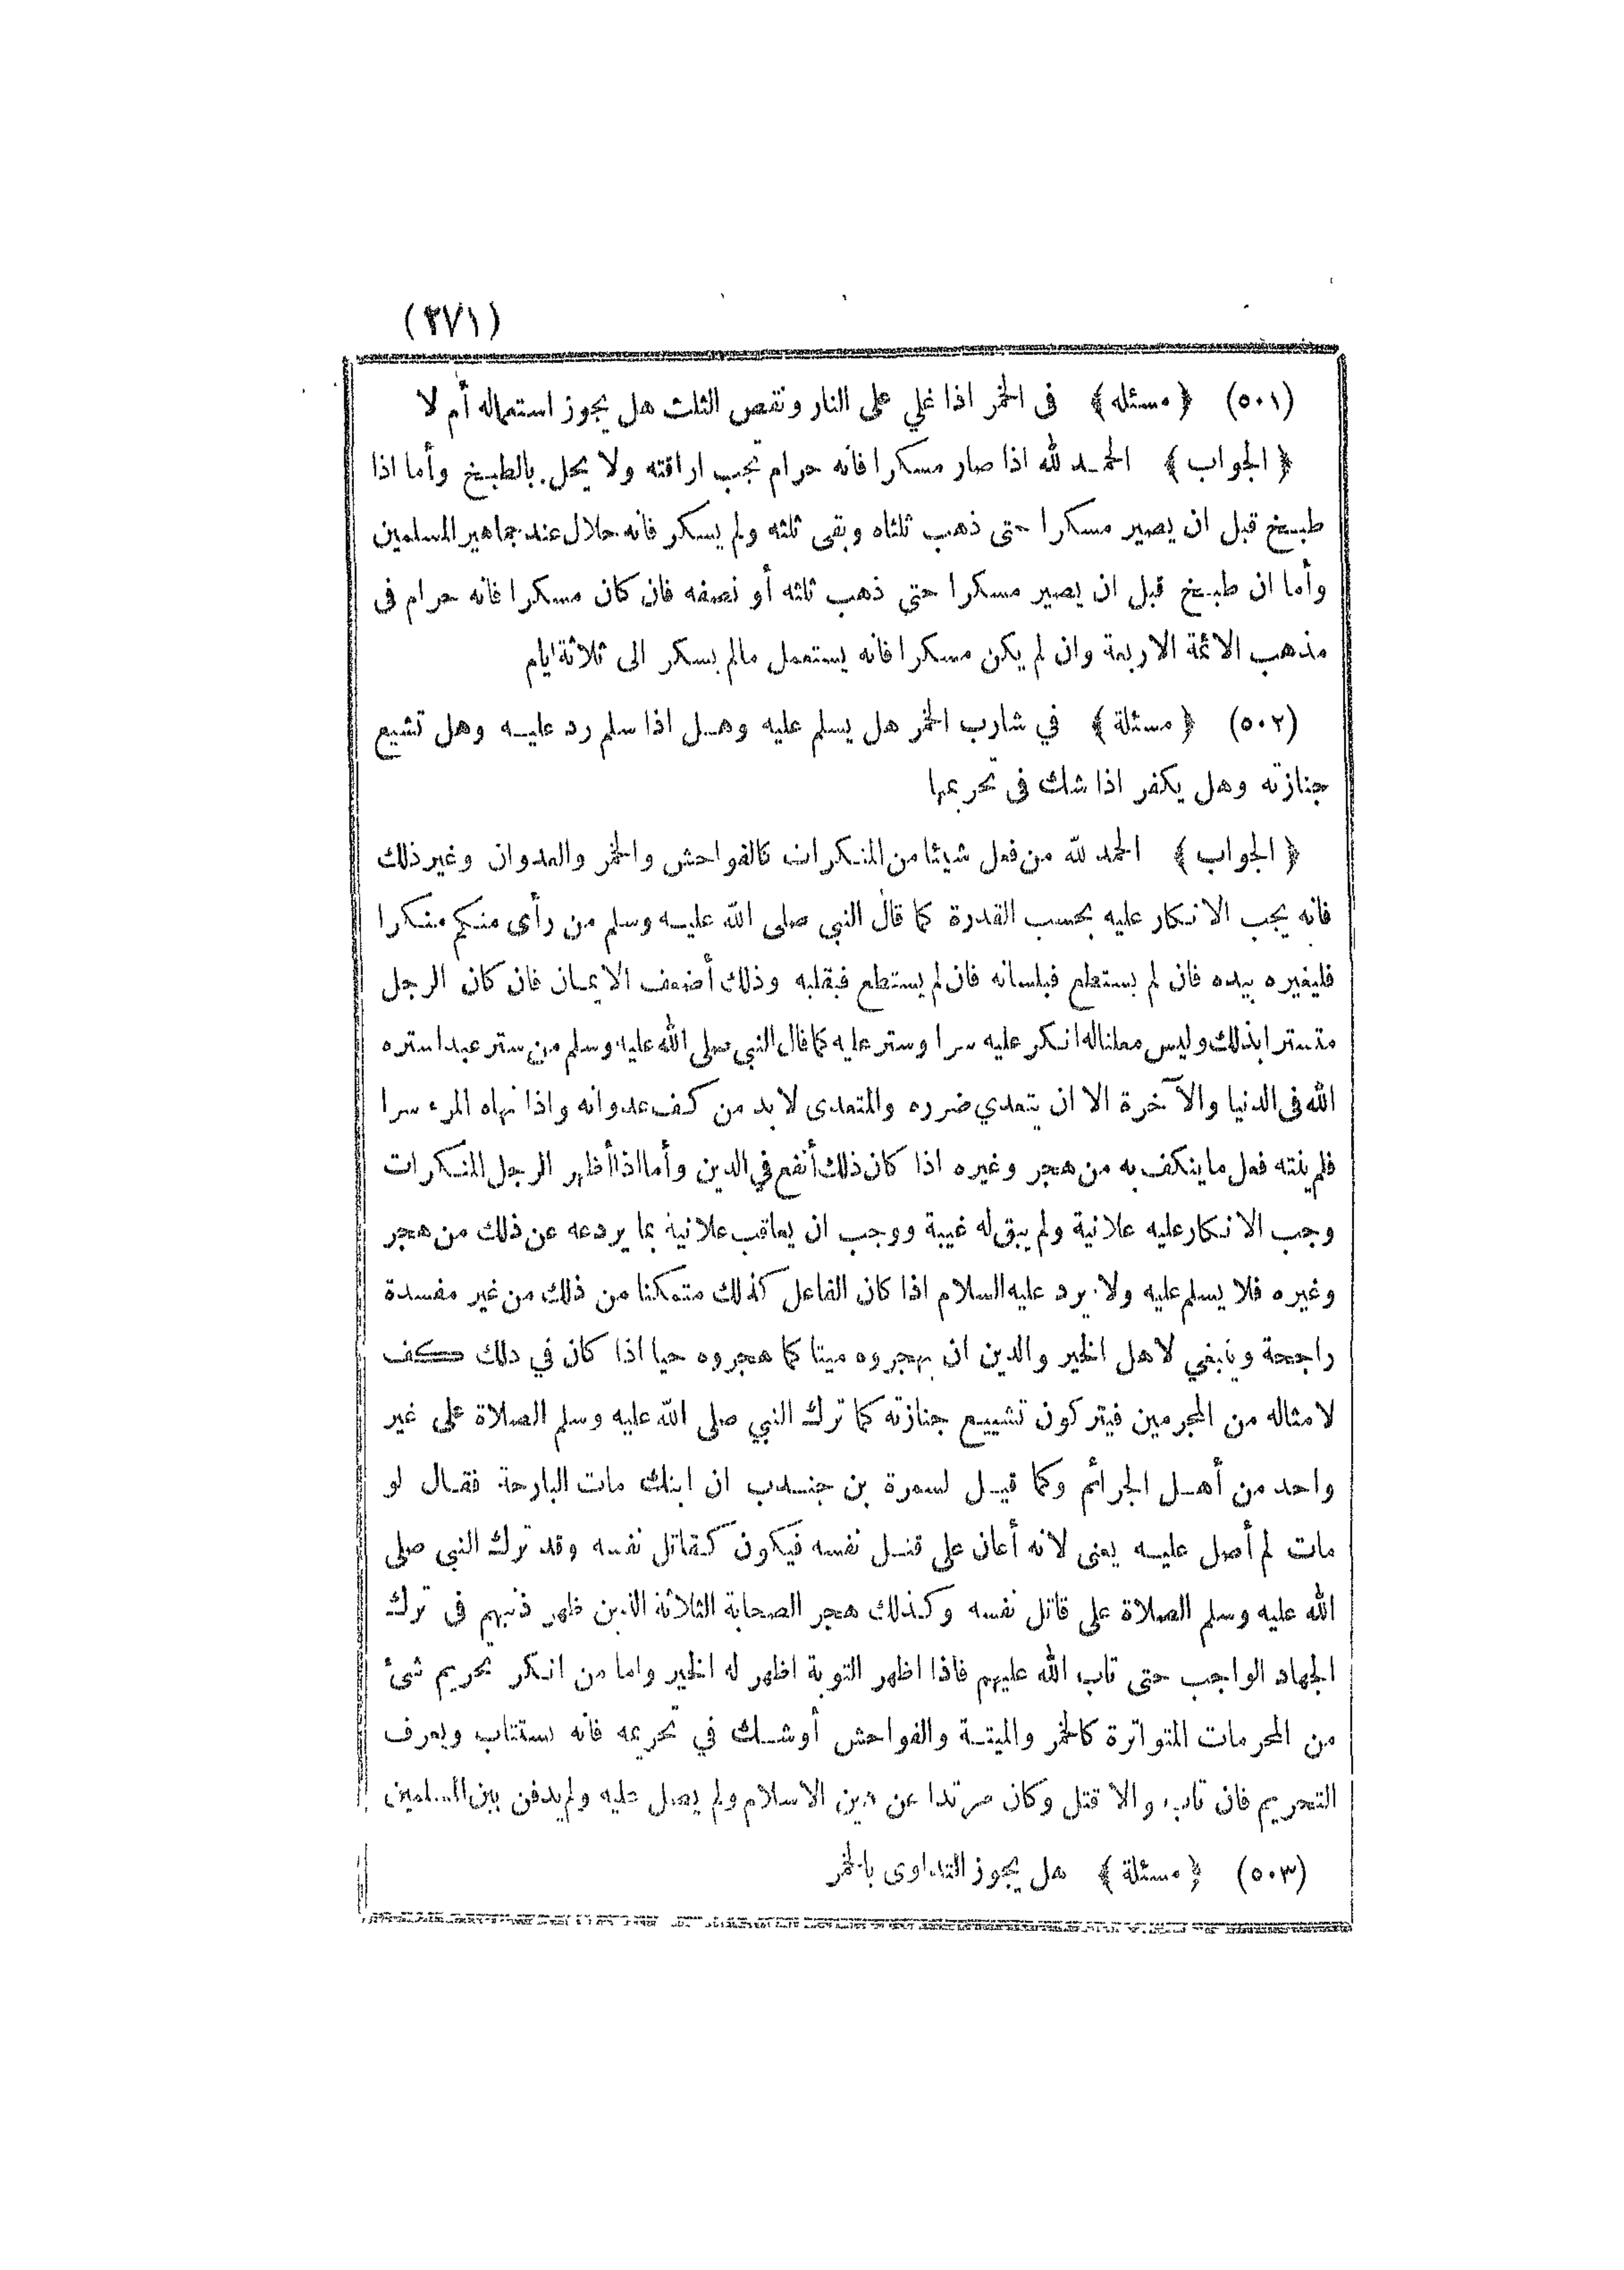 (٢٧١)
(٥٠١) ﴿ مسئله ﴾ فى الخمر اذا غلي على النار ونقص الثلث هل يجوز استعماله أم لا
﴿ الجواب ﴾ الحمد لله اذا صار مسكرا فانه حرام تجب اراقته ولا يحل بالطبخ وأما اذا
طبخ قبل ان يصير مسكرا حتى ذهب ثلثاه وبقى ثلثه ولم يسكر فانه حلال عند جماهير المسلمين
وأما ان طبخ قبل ان يصير مسكرا حتي ذهب ثلثه أو نصفه فان كان مسكرا فانه حرام فى
مذهب الائمة الاربعة وان لم يكن مسكرا فانه يستعمل مالم يسكر الى ثلاثة ايام
(٥٠٢) ﴿ مسئلة ﴾ في شارب الخمر هل يسلم عليه وهل اذا سلم رد عليه وهل تشيع
جنازته وهل يكفر اذا شك فى تحريمها
﴿ الجواب ﴾ الحمد لله من فعل شيئا من المنكرات كالفواحش والخمر والعدوان وغير ذلك
فانه يجب الانكار عليه بحسب القدرة كما قال النبي صلى الله عليه وسلم من رأى منكم منكرا
فليغيره بيده فان لم يستطع فبلسانه فان لم يستطع فبقلبه وذلك أضعف الايمان فان كان الرجل
متسترا بذلك وليس معلنا له انكر عليه سرا وستر عليه كما قال النبي صلى الله عليه وسلم من ستر عبدا ستره
الله فى الدنيا والآخرة الا ان يتعدي ضرره والمتعدى لا بد من كف عدوانه واذا نهاه المرء سرا
فلم ينته فعل ما ينكف به من هجر وغيره اذا كان ذلك أنفع في الدين وأما اذا أظهر الرجل المنكرات
وجب الانكار عليه علانية ولم يبق له غيبة ووجب ان يعاقب علانية بما يردعه عن ذلك من هجر
وغيره فلا يسلم عليه ولا يرد عليه السلام اذا كان الفاعل كذلك متمكنا من ذلك من غير مفسدة
راجحة وينبغي لاهل الخير والدين ان يهجروه ميتا كما هجروه حيا اذا كان في ذلك كف
لامثاله من المجرمين فيتركون تشييع جنازته كما ترك النبي صلى الله عليه وسلم الصلاة على غير
واحد من أهل الجرائم وكما قيل لسمرة بن جندب ان ابنك مات البارحة فقال لو
مات لم أصل عليه يعنى لانه أعان على قتل نفسه فيكون كقاتل نفسه وقد ترك النبي صلى
الله عليه وسلم الصلاة على قاتل نفسه وكذلك هجر الصحابة الثلاثة الذين ظهر ذنبهم فى ترك
الجهاد الواجب حتى تاب الله عليهم فاذا اظهر التوبة اظهر له الخير واما من انكر تحريم شئ
من المحرمات المتواترة كالخمر والميتة والفواحش أو شك في تحريمه فانه يستتاب ويعرف
التحريم فان تاب والا قتل وكان مرتدا عن دين الاسلام ولم يصل عليه ولم يدفن بين المسلمين
(٥٠٣) ﴿ مسئلة ﴾ هل يجوز التداوى بالخمر